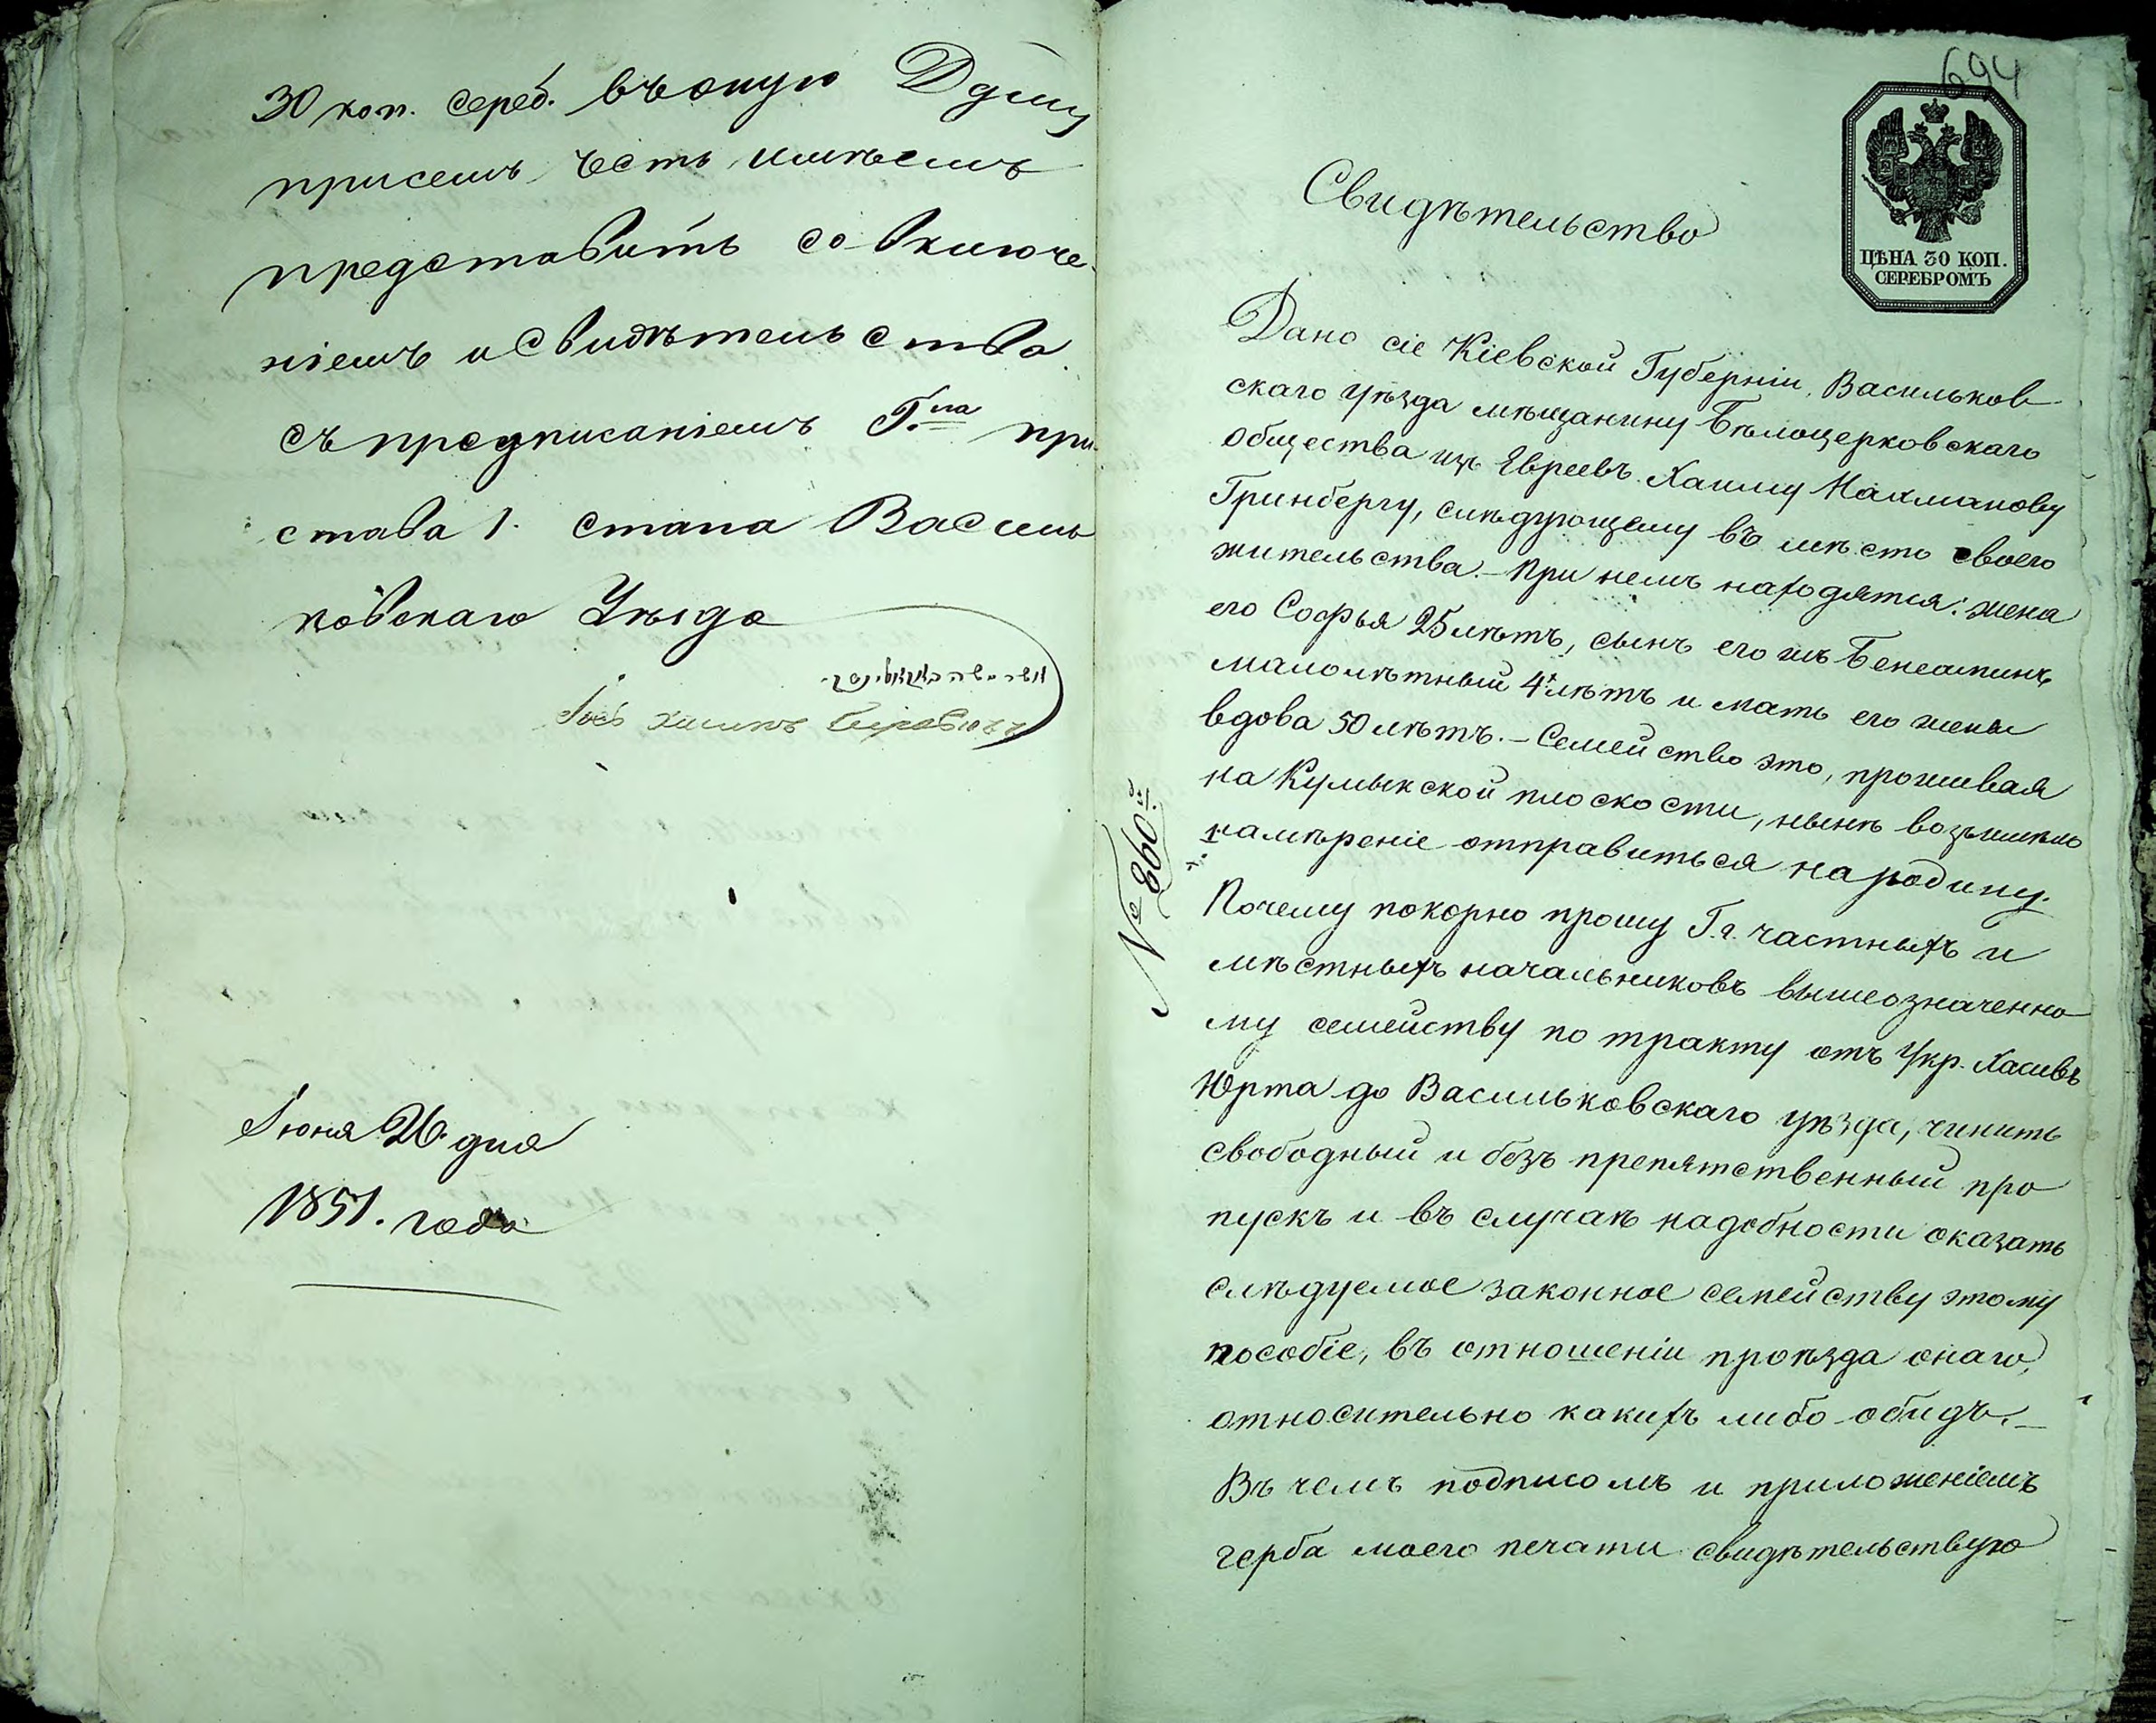 30 коп. сереб. въ оную Думу
присемъ честь имѣемъ
представить со включе-
ніемъ и Свидѣтельства
съ предписаніемъ Г.на при-
става 1. стана Василь
ковскаго Уѣзда
Іюня 26. дня
1851. года
694
ЦѢНА 30 КОП.
СЕРЕБРОМЪ
Свидѣтельство
Дано сіе Кіевской Губерніи, Васильков-
скаго уѣзда мѣщанину Бѣлоцерковскаго
общества изъ Евреевъ Хаиму Нахманову
Гринбергу, слѣдующему въ мѣсто своего
жительства. – При немъ находятся: жена
его Софья 25 лѣтъ, сынъ его же Бенеаминъ
малолѣтный 4 лѣтъ и мать его жены
вдова 50 лѣтъ. – Семейство это, проживая
на Кумыкской плоскости, нынѣ возъимѣло
намѣреніе отправиться на родину.
Почему покорно прошу Г.г. частныхъ и
мѣстныхъ начальниковъ вышеозначенно-
му семейству по тракту отъ Укр. Хасивъ
Юрта до Васильковскаго уѣзда, чинить
свободный и безъ препятственный про
пускъ и въ случаѣ надобности оказать
слѣдуемое законное семейству этому
пособіе, въ отношеніи проѣзда онаго,
относительно какихъ либо обидъ. –
Въ чемъ подписомъ и приложеніемъ
герба моего печати свидѣтельствую
№ 860